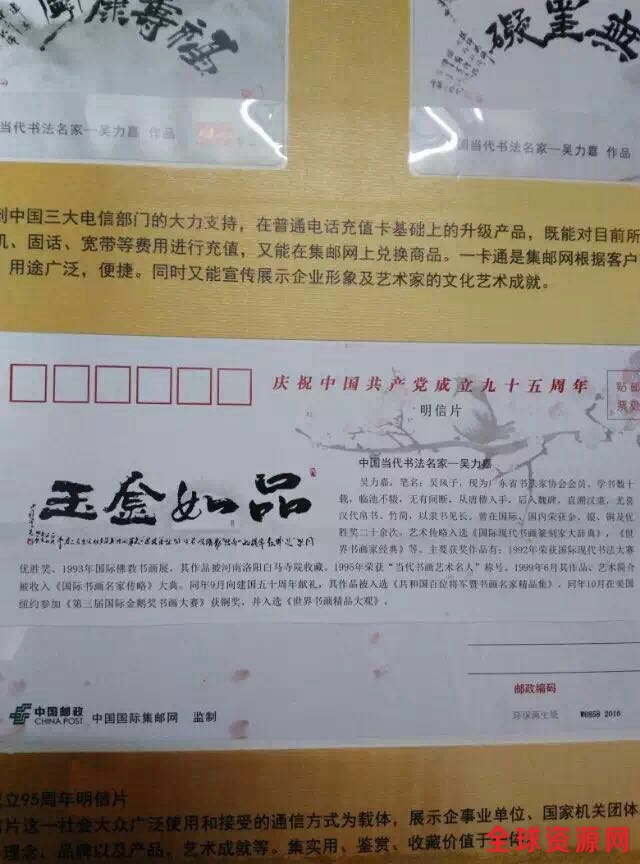 康寿福
无墨碍
当代书法名家—吴力嘉 作品
国当代书法名家—吴力嘉 作品
到中国三大电信部门的大力支持，在普通电话充值卡基础上的升级产品，既能对目前所
机、固话、宽带等费用进行充值，又能在集邮网上兑换商品。一卡通是集邮网根据客户
用途广泛，便捷。同时又能宣传展示企业形象及艺术家的文化艺术成就。
庆祝中国共产党成立九十五周年
贴邮
票处
明信片
中国当代书法名家—吴力嘉
吴力嘉，笔名：吴风子，现为广东省书法家协会会员，学书数十
载，临池不辍，无有间断，从唐楷入手，后入魏碑，直溯汉隶，尤喜
汉代帛书、竹简，以隶书见长。曾在国际、国内荣获金、银、铜及优
胜奖二十余次。艺术传略入选《国际现代书画篆刻家大辞典》，《世
界书画家经典》等。主要获奖作品有：1992年荣获国际现代书法大赛
玉金如品
优胜奖、1993年国际佛教书画展，其作品被河南洛阳白马寺院收藏。1995年荣获“当代书画艺术名人”称号。1999年6月其作品、艺术简介
被收入《国际书画名家传略》大典。同年9月向建国五十周年献礼，其作品被入选《共和国百位将军暨书画名家精品集》。同年10月在美国
纽约参加《第三届国际金鹅奖书画大赛》获铜奖，并入选《世界书画精品大观》。
邮政编码
中国邮政
CHINA POST
中国国际集邮网 监制
环保再生纸 W6858 2016
立95周年明信片
片这一社会大众广泛使用和接受的通信方式为载体，展示企事业单位、国家机关团体
理念，品牌以及产品，艺术成就等。集实用、鉴赏、收藏价值于
全球资源网